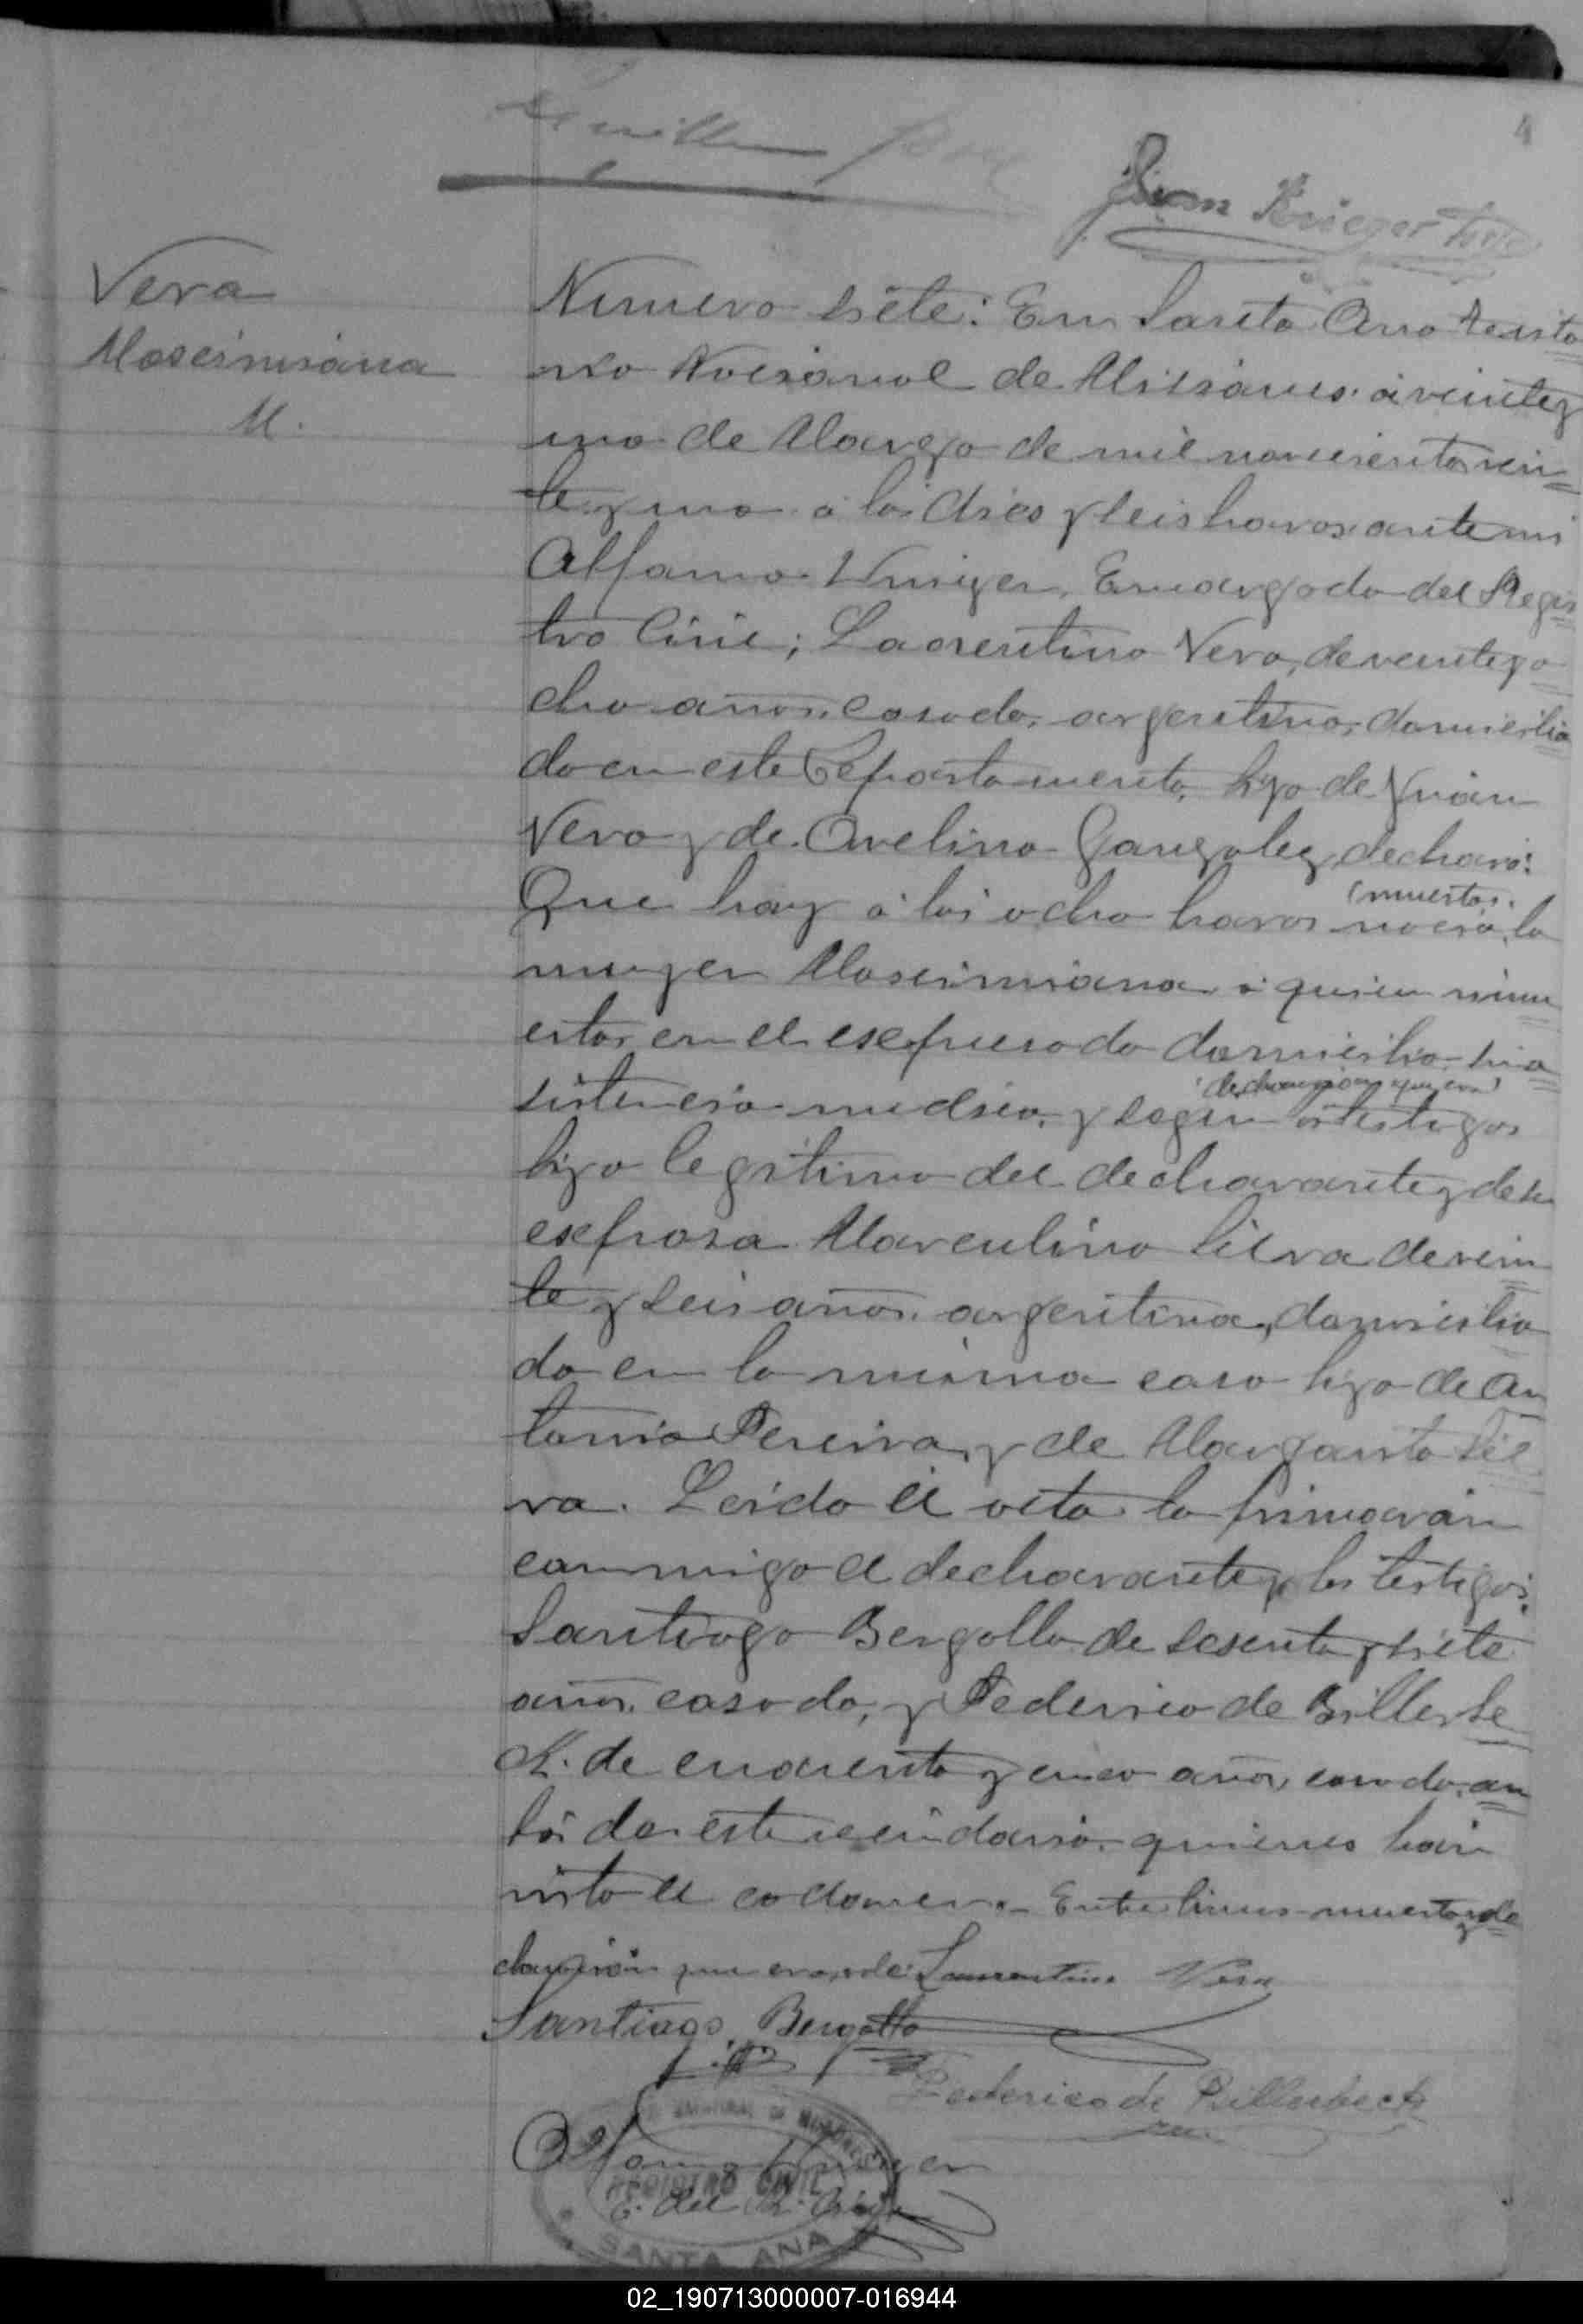 4
Juan Krieger
Vera
Mascimiana
M.
Numero siete: En Santa Ana Territo
rio Nacional de Misiones á veinte y
uno de Marzo de mil novecientos vein
te y uno á las dies y seis horas ante mi
Alfonso Encargado del Regis
tro Civil; Laurentino Vera, de veinte y o
cho años, casado, argentino, domicilia
do en este Departamento, hijo de Juan
Vera y de Avelina Gonzalez, declaró:
Que hoy á las ocho horas nació (muerta). la
mujer Mascimiana á quien vimos
esta, en el espresado domicilio sin a
sistencia medica, y segun (declaración que era) testigos
hija legitima del declarante y de su
esposa Marculina Silva de vein
te y seis años, argentina, domicilia
da en la misma casa hija de An
tonio Pereira, y de Margarita Sil
va. Leida el acta la firmaran
conmigo el declarante y los testigos,
Santiago Bergollo de sesenta y siete
años, casado, y Federico de Billerbe
k. de cuarenta y cinco años, casado, am
bos de este vecindario, quienes han
visto el cadaver. Entre lineas muerta y de
claración que era vale: Laurentino Vera
Santiago Bergollo
Federico de Billerbeck
Alfonso
E. del R. Civil
REGISTRO CIVIL
SANTA ANA
02_190713000007-016944